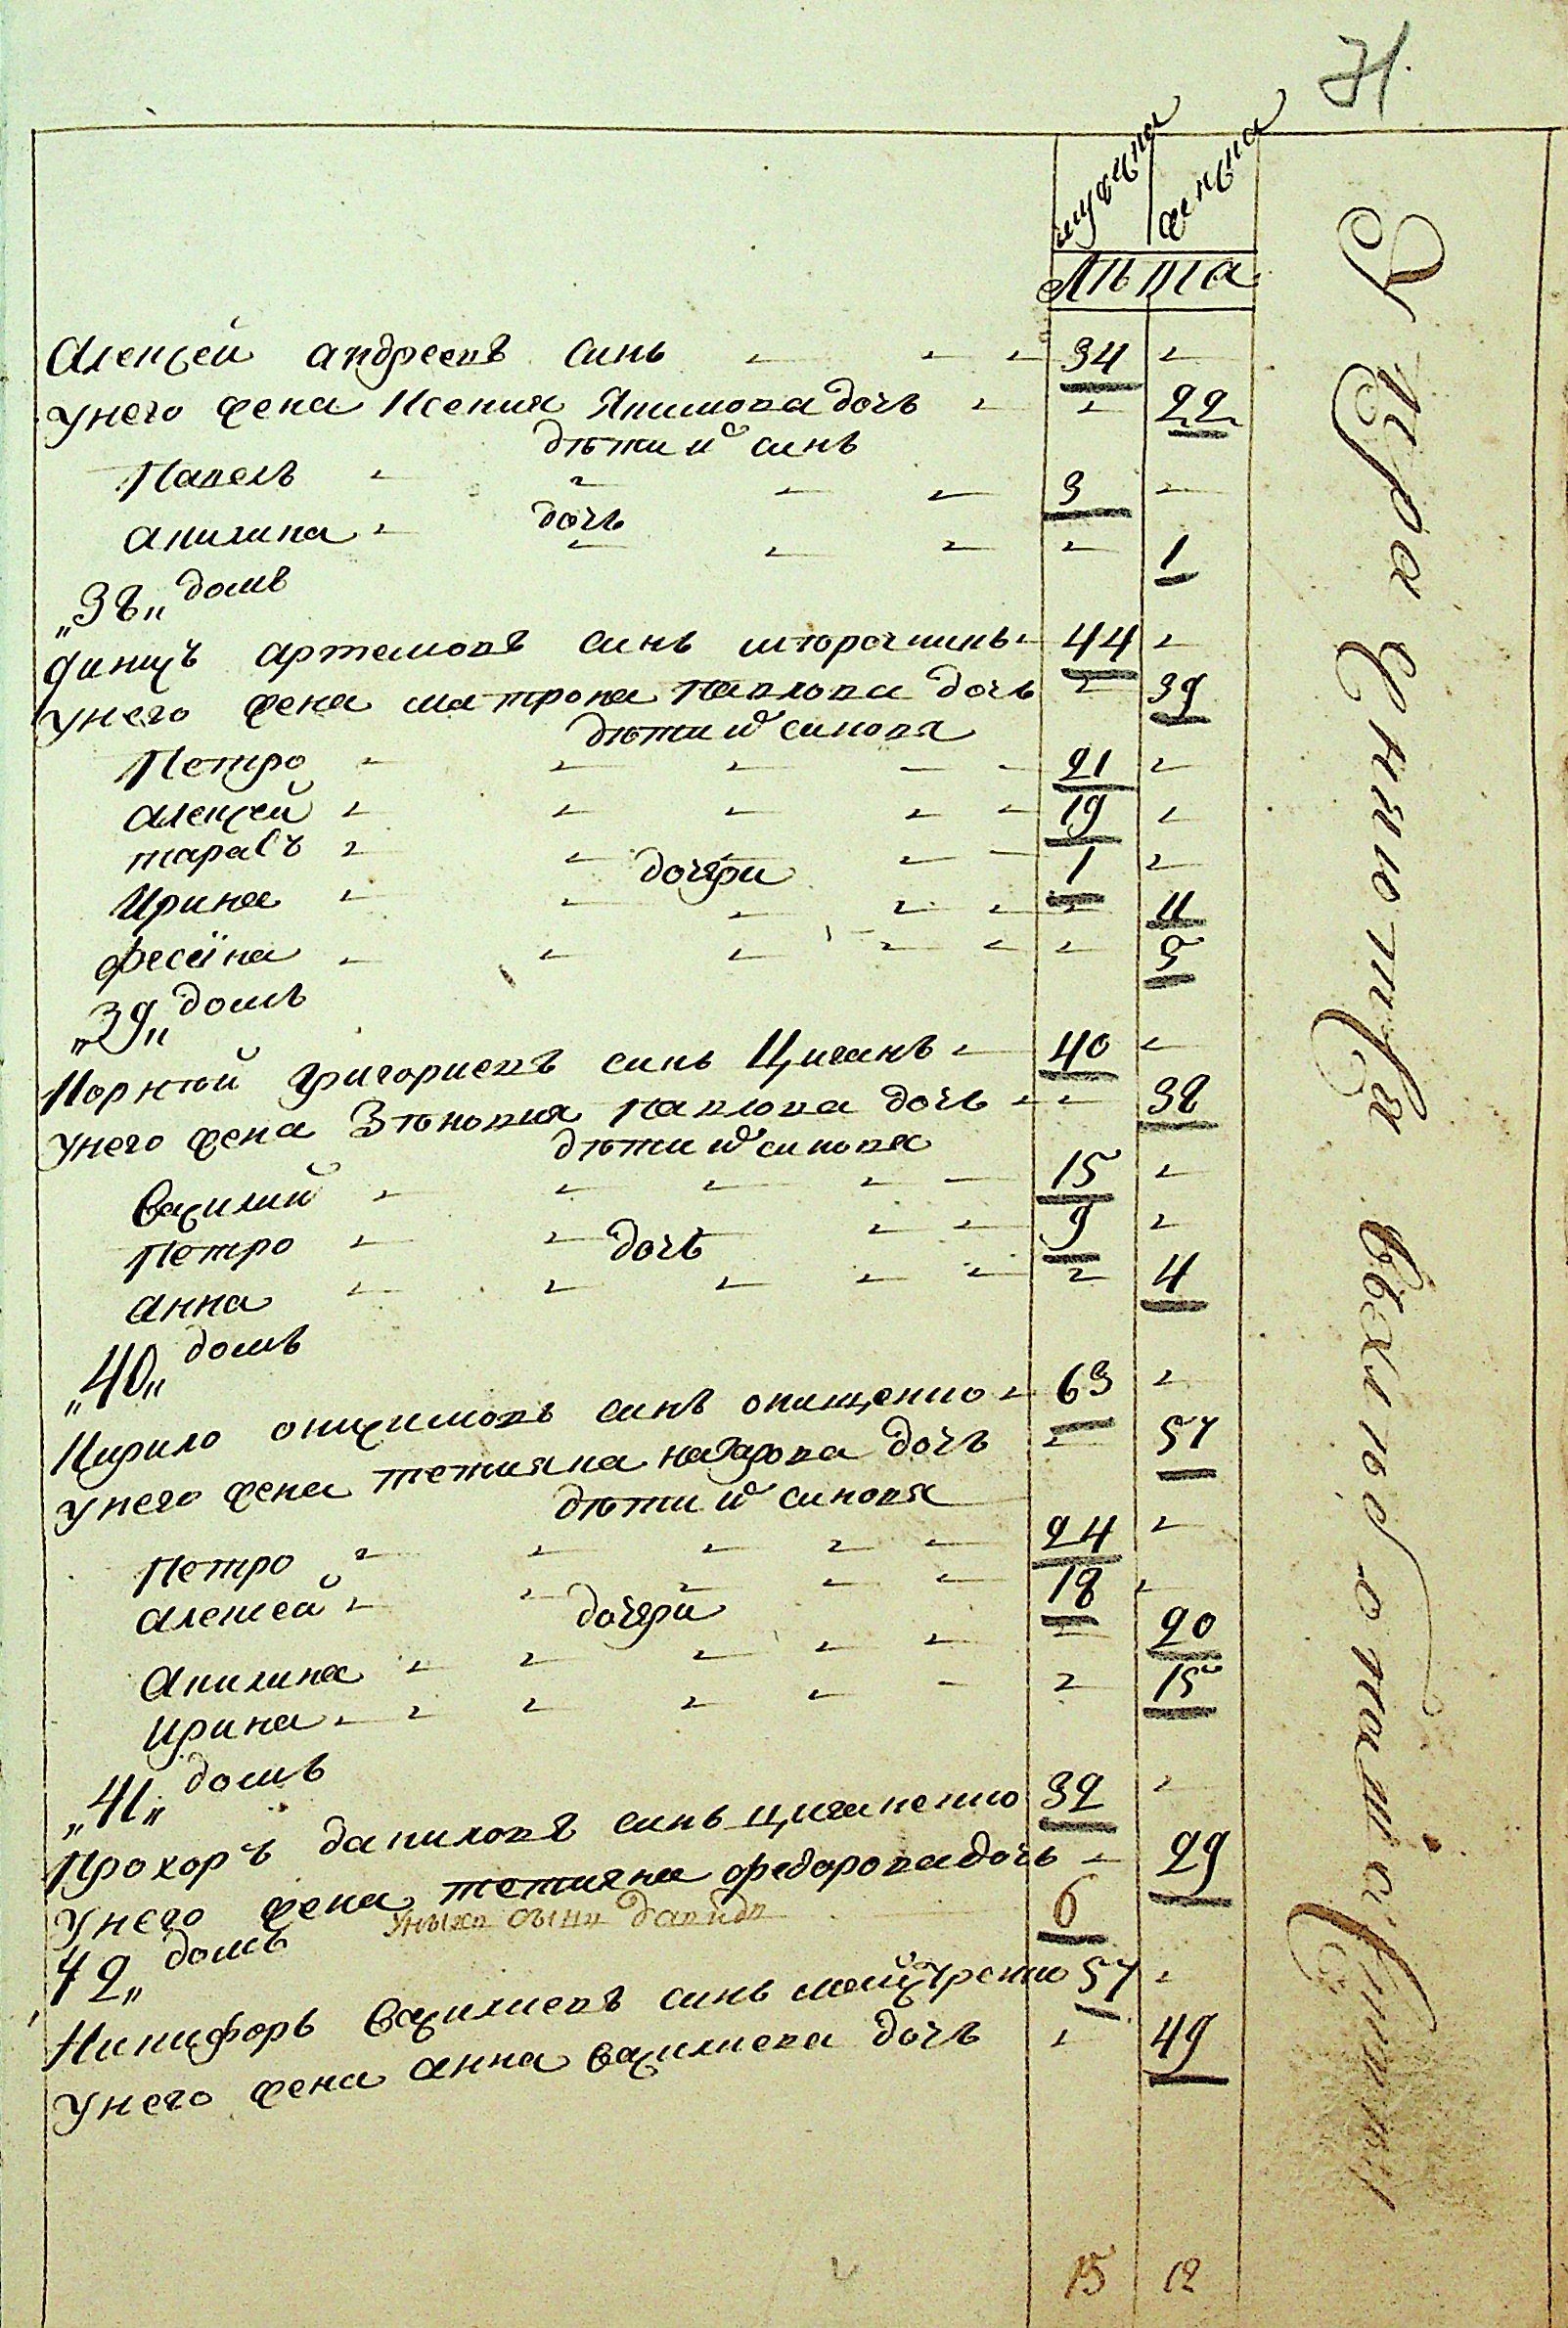 71.
мужска женска
лѣта
Алексей андреевъ синъ 34
унего жена Ксения Якимова дочь 22
дѣти ихъ синъ
Павелъ 3
дочь
акилина 1
„38„ домъ
артемовъ синъ 44
унего жена матрона павлова дочь 39
дѣти ихъ синовя
Петро 21
алексей 19
тарасъ 1
дочери
Ирина 11
фесеїна 5
„39„ домъ
Корнѣй григориевъ синъ Циганъ 40
унего жена Зѣновия павлова дочь 38
дѣти ихъ синовя
василий 15
Петро 9
дочь
анна 4
„40„ домъ
Кирило онисимовъ синъ онищенко 63
унего жена тетияна назарова дочь 57
дѣти ихъ синовя
Петро 24
алексей 18
дочери
Акилина 20
Ирина 15
„41„ домъ
Прохоръ даниловъ синъ циганенко 32
унего жена тетияна федорова дочь 29
унихъ сынъ давидъ 6
42„ домъ
Никифоръ василиевъ синъ 57
унего жена анна василиева дочь 49
15 12